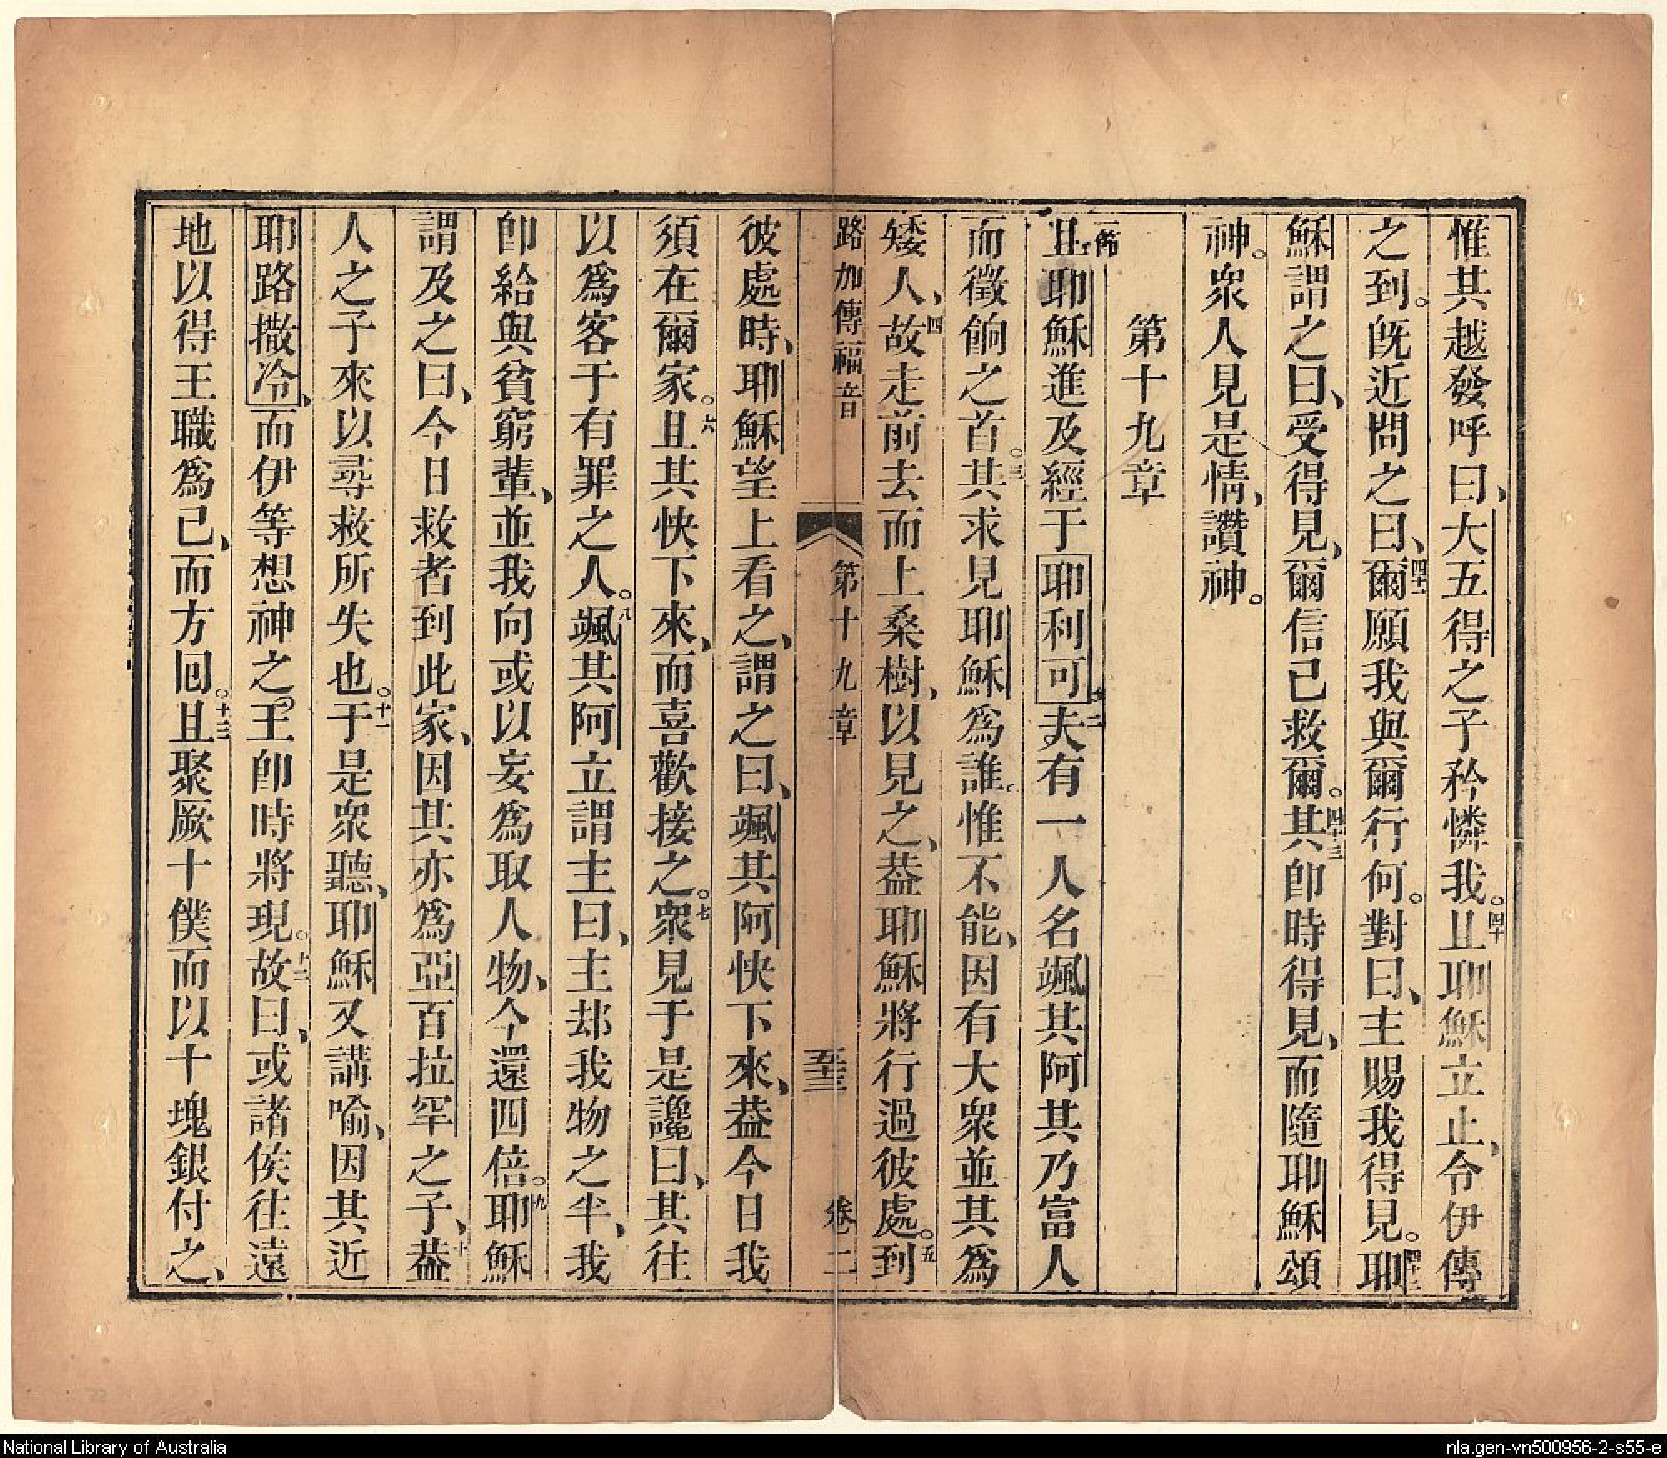 惟其越發呼曰、大五得之子矜憐我。四十且耶穌立止、令伊傳
之到。既近問之曰、四十一爾願我與爾行何。對曰、主賜我得見。四十二耶
穌謂之曰、受得見、爾信已救爾。四十三其卽時得見、而隨耶穌頌
神。衆人見是情、讚神。
第十九章
一節且耶穌進及經于耶利可。二夫有一人名颯其阿其乃富人
而徵餉之首。三其求見耶穌爲誰。惟不能、因有大衆並其爲
矮人、四故走前去而上桑樹、以見之、葢耶穌將行過彼處。五到
路加傳福音 第十九章 五十三 卷二
彼處時、耶穌望上看之、謂之曰、颯其阿快下來、葢今日我
須在爾家。六且其快下來、而喜歡接之。七衆見于是讒曰、其往
以爲客于有罪之人。八颯其阿立謂主曰、主却我物之半、我
卽給與貧窮輩、並我向或以妄爲取人物、今還四倍。九耶穌
謂及之曰、今日救者到此家、因其亦爲亞百拉罕之子、十葢
人之子來以尋救所失也。十一于是衆聽、耶穌又講喻、因其近
耶路撒冷、而伊等想神之王卽時將現。十二故曰、或諸侯往遠
地以得王職爲已、而方回。十三且聚厥十僕而以十塊銀付之、
National Library of Australia
nla.gen-vn500956-2-s55-e